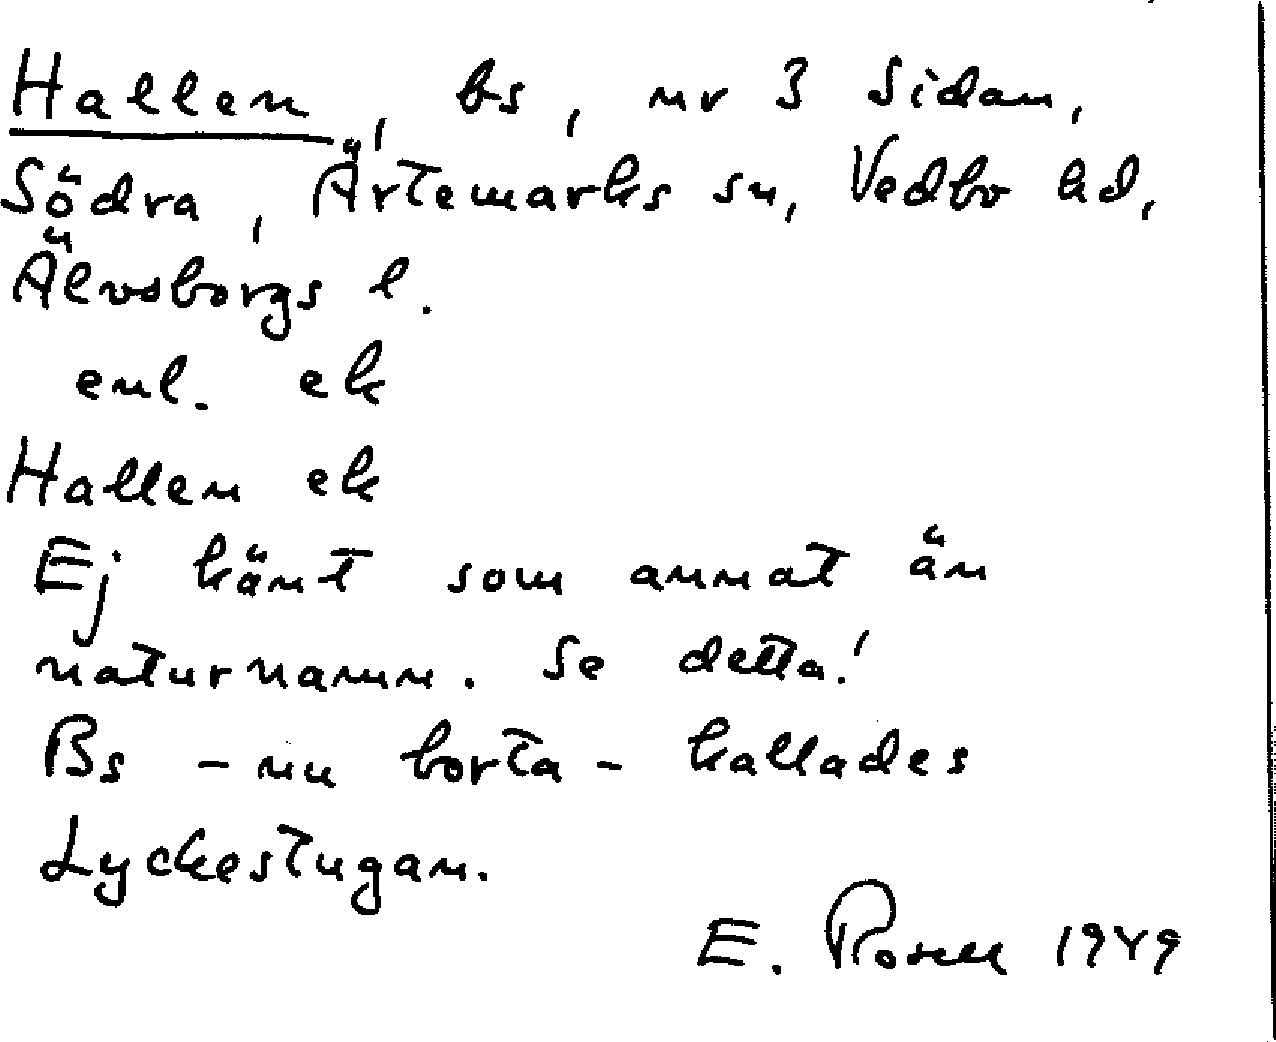 Hallen, bs, nr 3 Sidan,
Södra, Ärtemarks sn, Vedbo hd,
Älvsborgs l.
enl. ek
Hallen ek
Ej känt som annat än
naturnamn. Se detta!
Bs - nu borta - kallades
Lyckestugan.
E. Rosell 1949